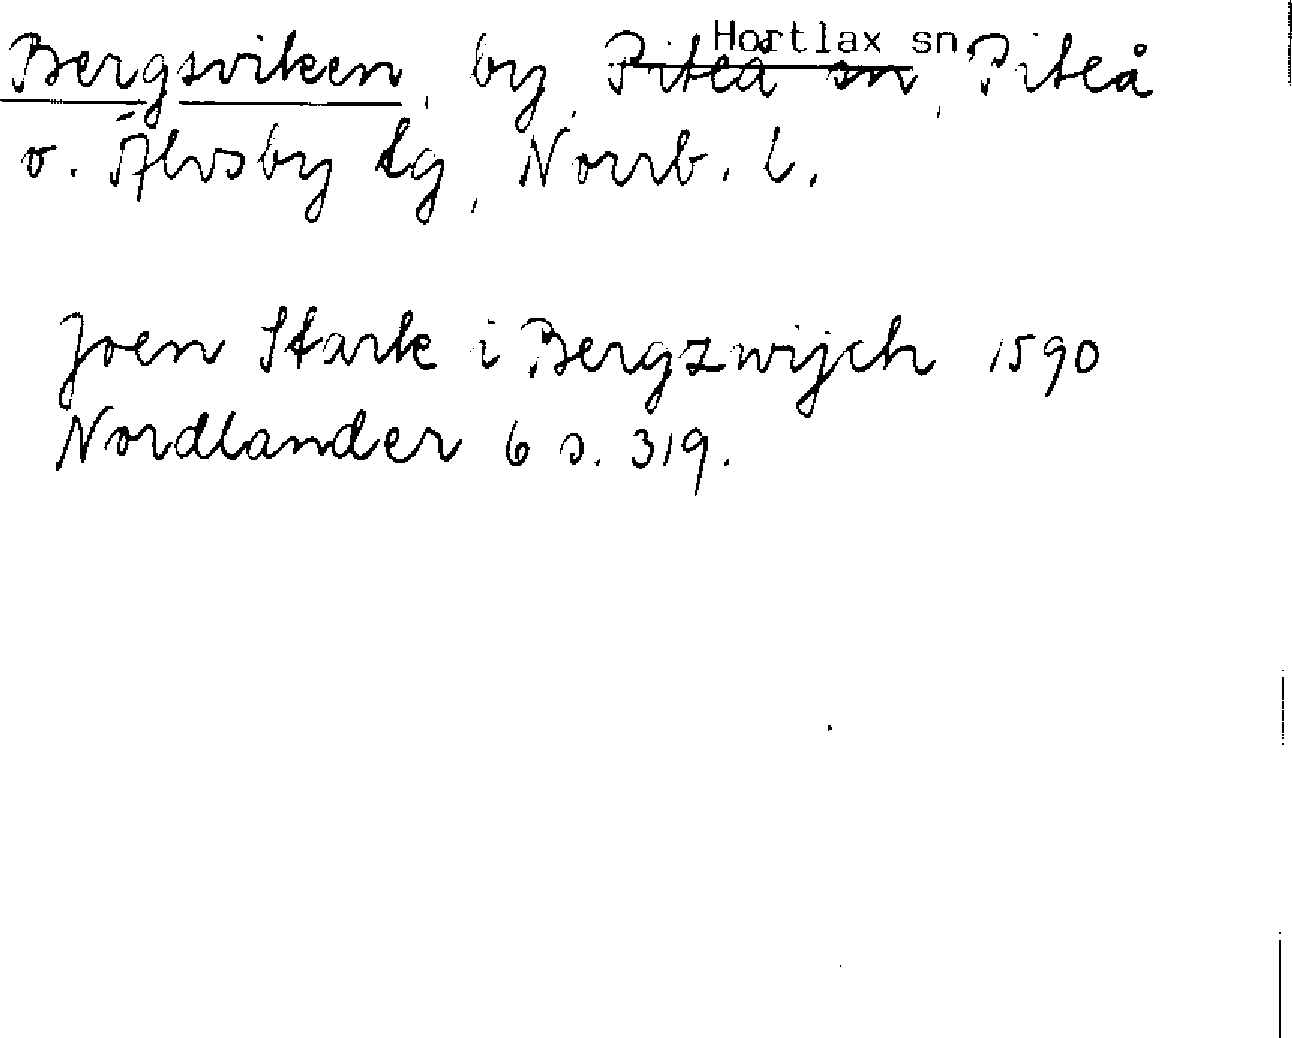 Bergsviken, by, Piteå sn, Hortlax sn Piteå
o. Älvsby tg, Norrb. l.
Joen Stark i Bergzwijch 1590
Nordlander 6 s. 319.